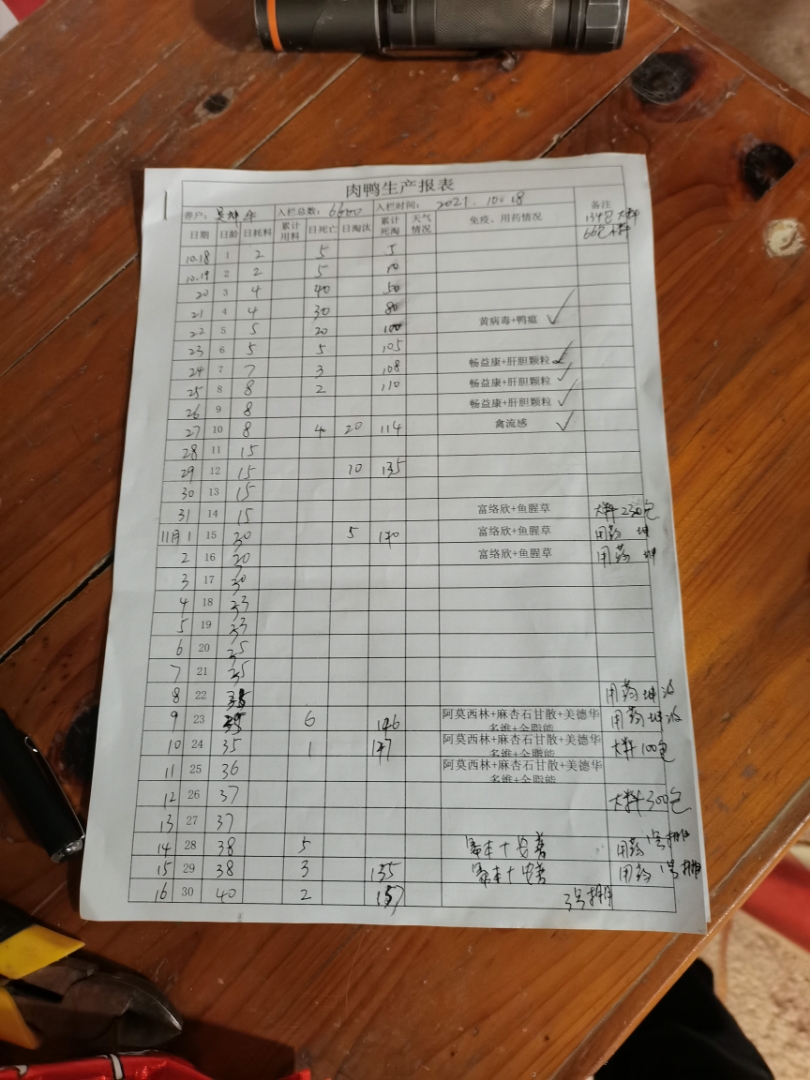 肉鸭生产报表
养户: 吴坤 入栏总数: 6600 入栏时间: 2021.10.18 备注
日期 日龄 日耗料 累计用料 日死亡 日淘汰 累计死淘 天气情况 免疫、用药情况 134包大料
66包
10.18 1 2 5 5
10.19 2 2 5 10
20 3 4 40 50
21 4 4 30 80
22 5 5 20 100 黄病毒+鸭瘟 ✓
23 6 5 5 105
24 7 7 3 108 畅益康+肝胆颗粒 ✓
25 8 8 2 110 畅益康+肝胆颗粒 ✓
26 9 8 畅益康+肝胆颗粒 ✓
27 10 8 4 20 114 禽流感 ✓
28 11 15
29 12 15 10 135
30 13 15
31 14 15 富络欣+鱼腥草 大料230包
11月1 15 20 5 140 富络欣+鱼腥草 用药 坤
2 16 20 富络欣+鱼腥草 用药 坤
3 17 30
4 18 33
5 19 33
6 20 35
7 21 35
8 22 35 用药 坤
9 23 35 6 146 阿莫西林+麻杏石甘散+美德华多维+全脂能 用药 坤
10 24 35 1 147 阿莫西林+麻杏石甘散+美德华多维+全脂能 大料100包
11 25 36 阿莫西林+麻杏石甘散+美德华多维+全脂能
12 26 37 大料300包
13 27 37
14 28 38 5 用药 1号棚
15 29 38 3 155 用药 1号棚
16 30 40 2 157 3号棚